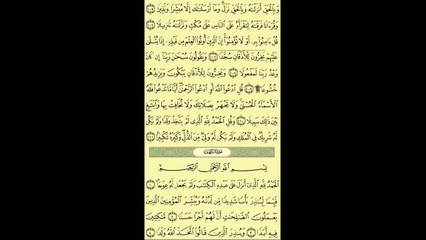 وَبِالْحَقِّ أَنزَلْنَاهُ وَبِالْحَقِّ نَزَلَ وَمَا أَرْسَلْنَاكَ إِلَّا مُبَشِّرًا وَنَذِيرًا ۝١٠٥
وَقُرْآنًا فَرَقْنَاهُ لِتَقْرَأَهُ عَلَى النَّاسِ عَلَىٰ مُكْثٍ وَنَزَّلْنَاهُ تَنزِيلًا ۝١٠٦
قُلْ آمِنُوا بِهِ أَوْ لَا تُؤْمِنُوا إِنَّ الَّذِينَ أُوتُوا الْعِلْمَ مِن قَبْلِهِ إِذَا يُتْلَىٰ
عَلَيْهِمْ يَخِرُّونَ لِلْأَذْقَانِ سُجَّدًا ۝١٠٧ وَيَقُولُونَ سُبْحَانَ رَبِّنَا إِن كَانَ
وَعْدُ رَبِّنَا لَمَفْعُولًا ۝١٠٨ وَيَخِرُّونَ لِلْأَذْقَانِ يَبْكُونَ وَيَزِيدُهُمْ
خُشُوعًا ۩ ۝١٠٩ قُلِ ادْعُوا اللَّهَ أَوِ ادْعُوا الرَّحْمَٰنَ أَيًّا مَّا تَدْعُوا فَلَهُ
الْأَسْمَاءُ الْحُسْنَىٰ وَلَا تَجْهَرْ بِصَلَاتِكَ وَلَا تُخَافِتْ بِهَا وَابْتَغِ
بَيْنَ ذَٰلِكَ سَبِيلًا ۝١١٠ وَقُلِ الْحَمْدُ لِلَّهِ الَّذِي لَمْ يَتَّخِذْ وَلَدًا وَلَمْ يَكُن
لَّهُ شَرِيكٌ فِي الْمُلْكِ وَلَمْ يَكُن لَّهُ وَلِيٌّ مِّنَ الذُّلِّ وَكَبِّرْهُ تَكْبِيرًا ۝١١١
سُورَةُ الْكَهْفِ
بِسْمِ اللَّهِ الرَّحْمَٰنِ الرَّحِيمِ
الْحَمْدُ لِلَّهِ الَّذِي أَنزَلَ عَلَىٰ عَبْدِهِ الْكِتَابَ وَلَمْ يَجْعَل لَّهُ عِوَجًا ۝١
قَيِّمًا لِّيُنذِرَ بَأْسًا شَدِيدًا مِّن لَّدُنْهُ وَيُبَشِّرَ الْمُؤْمِنِينَ الَّذِينَ
يَعْمَلُونَ الصَّالِحَاتِ أَنَّ لَهُمْ أَجْرًا حَسَنًا ۝٢ مَّاكِثِينَ
فِيهِ أَبَدًا ۝٣ وَيُنذِرَ الَّذِينَ قَالُوا اتَّخَذَ اللَّهُ وَلَدًا ۝٤